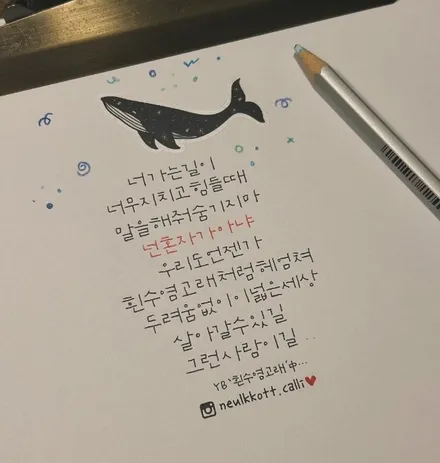 너가는길이
너무지치고힘들때
말을해줘숨기지마
넌혼자가아냐
우리도언젠가
흰수염고래처럼헤엄쳐
두려움없이이넓은세상
살아갈수있길
그런사람이길..
YB'흰수염고래'中...
neulkkott.calli